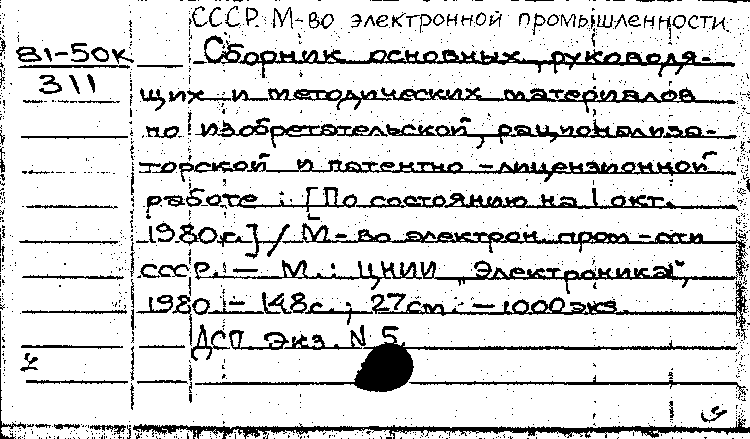 СССР. М-во электронной промышленности
81-50к
311
Сборник основных руководя-
щих и методических материалов
по изобретательской, рационализа-
торской и патентно-лицензионной
работе: [По состоянию на 1 окт.
1980г.] / М-во электрон. пром-сти
СССР. — М.: ЦНИИ "Электроника",
1980. - 148с.; 27см. - 1000экз.
ДСП. Экз. N 5